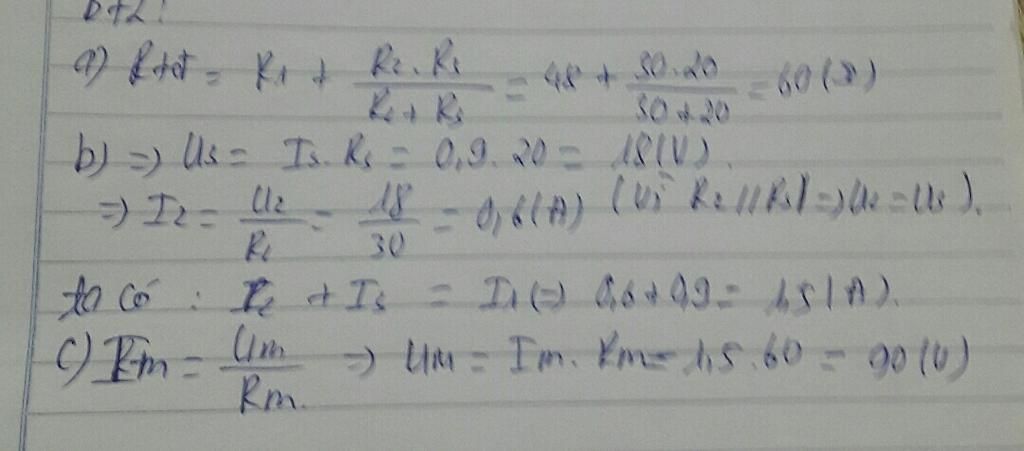 a) Rtđ = R1 + R2.R3 / R2+R3 = 48 + 30.20 / 30+20 = 60(Ω)
b) => U3 = I3.R3 = 0,9.20 = 18(V).
=> I2 = U2 / R2 = 18 / 30 = 0,6(A) (Vì R2//R3) => U2=U3).
ta có : I2 + I3 = I1 (=) 0,6+0,9= 1,5(A).
c) Im = Um / Rm. => Um = Im.Rm= 1,5.60 = 90(V)